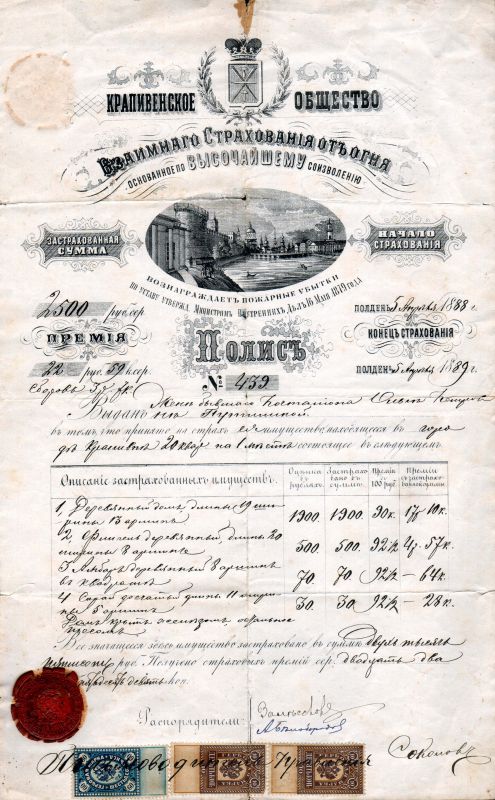 КРАПИВЕНСКОЕ ОБЩЕСТВО
ВЗАИМНАГО СТРАХОВАНІЯ ОТЪ ОГНЯ
ОСНОВАННОЕ ПО ВЫСОЧАЙШЕМУ СОИЗВОЛЕНІЮ
ЗАСТРАХОВАННАЯ СУММА
НАЧАЛО СТРАХОВАНІЯ
ВОЗНАГРАЖДАЕТЪ ПОЖАРНЫЕ УБЫТКИ
ПО УСТАВУ УТВЕРЖД. МИНИСТРОМЪ ВНУТРЕННИХЪ ДѢЛЪ 16 МАЯ 1879 ГОДА
2500 руб. сер.
ПОЛДЕНЬ 5 Апрѣля 1888 г.
ПРЕМІЯ
ПОЛИСЪ
КОНЕЦЪ СТРАХОВАНІЯ
22 руб. 59 к. сер.
№ 439
ПОЛДЕНЬ 5 Апрѣля 1889 г.
Выданъ
въ томъ, что принято на страхъ имущество, находящееся въ
Крапивнѣ 20 квар. на 1 мѣстѣ состоящее въ слѣдующемъ
Описаніе застрахованныхъ имуществъ.
Оцѣнка въ рубляхъ.
Застрахо вано въ суммѣ.
Преміи съ 100 руб.
Преміи съ застрахо
1, Деревянный домъ длины 19 ши
рины 13 аршинъ
1900. 1900. 90 к. 17 р. 10 к.
2, Флигель деревянный, длины 20
ширины 8 аршинъ
500. 500. 92 1/2 4 р. 57 к.
3 Амбаръ деревянный 8 аршинъ
въ квадратѣ
70. 70. 92 1/2 — 64 к.
4 Сарай досчатый длины 11 шири
ны 5 аршинъ
30. 30. 92 1/2 — 28 к.
Все значущееся здѣсь имущество застраховано въ суммѣ двухъ тысячъ
пятисотъ руб. Получено страховыхъ премій сер. двадцать два
пятьдесятъ девять коп.
Распорядители:
Соколовъ